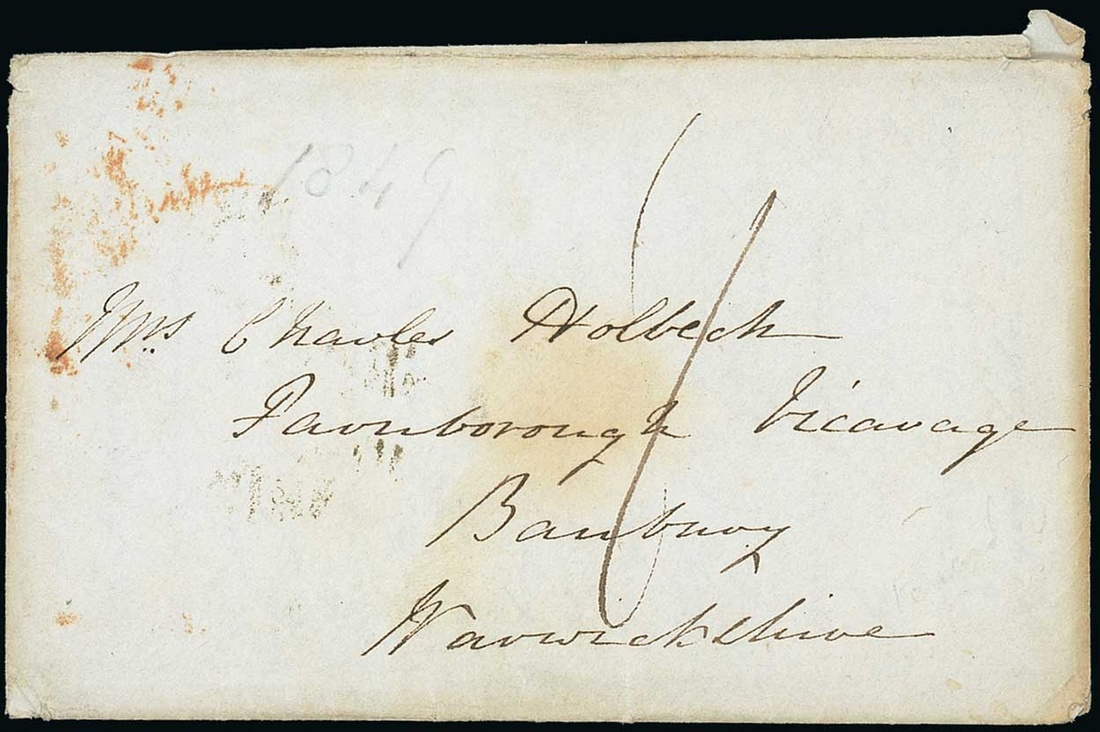 1849
Mrs. Charles Holbech
Farnborough Vicarage
Banbury
Warwickshire